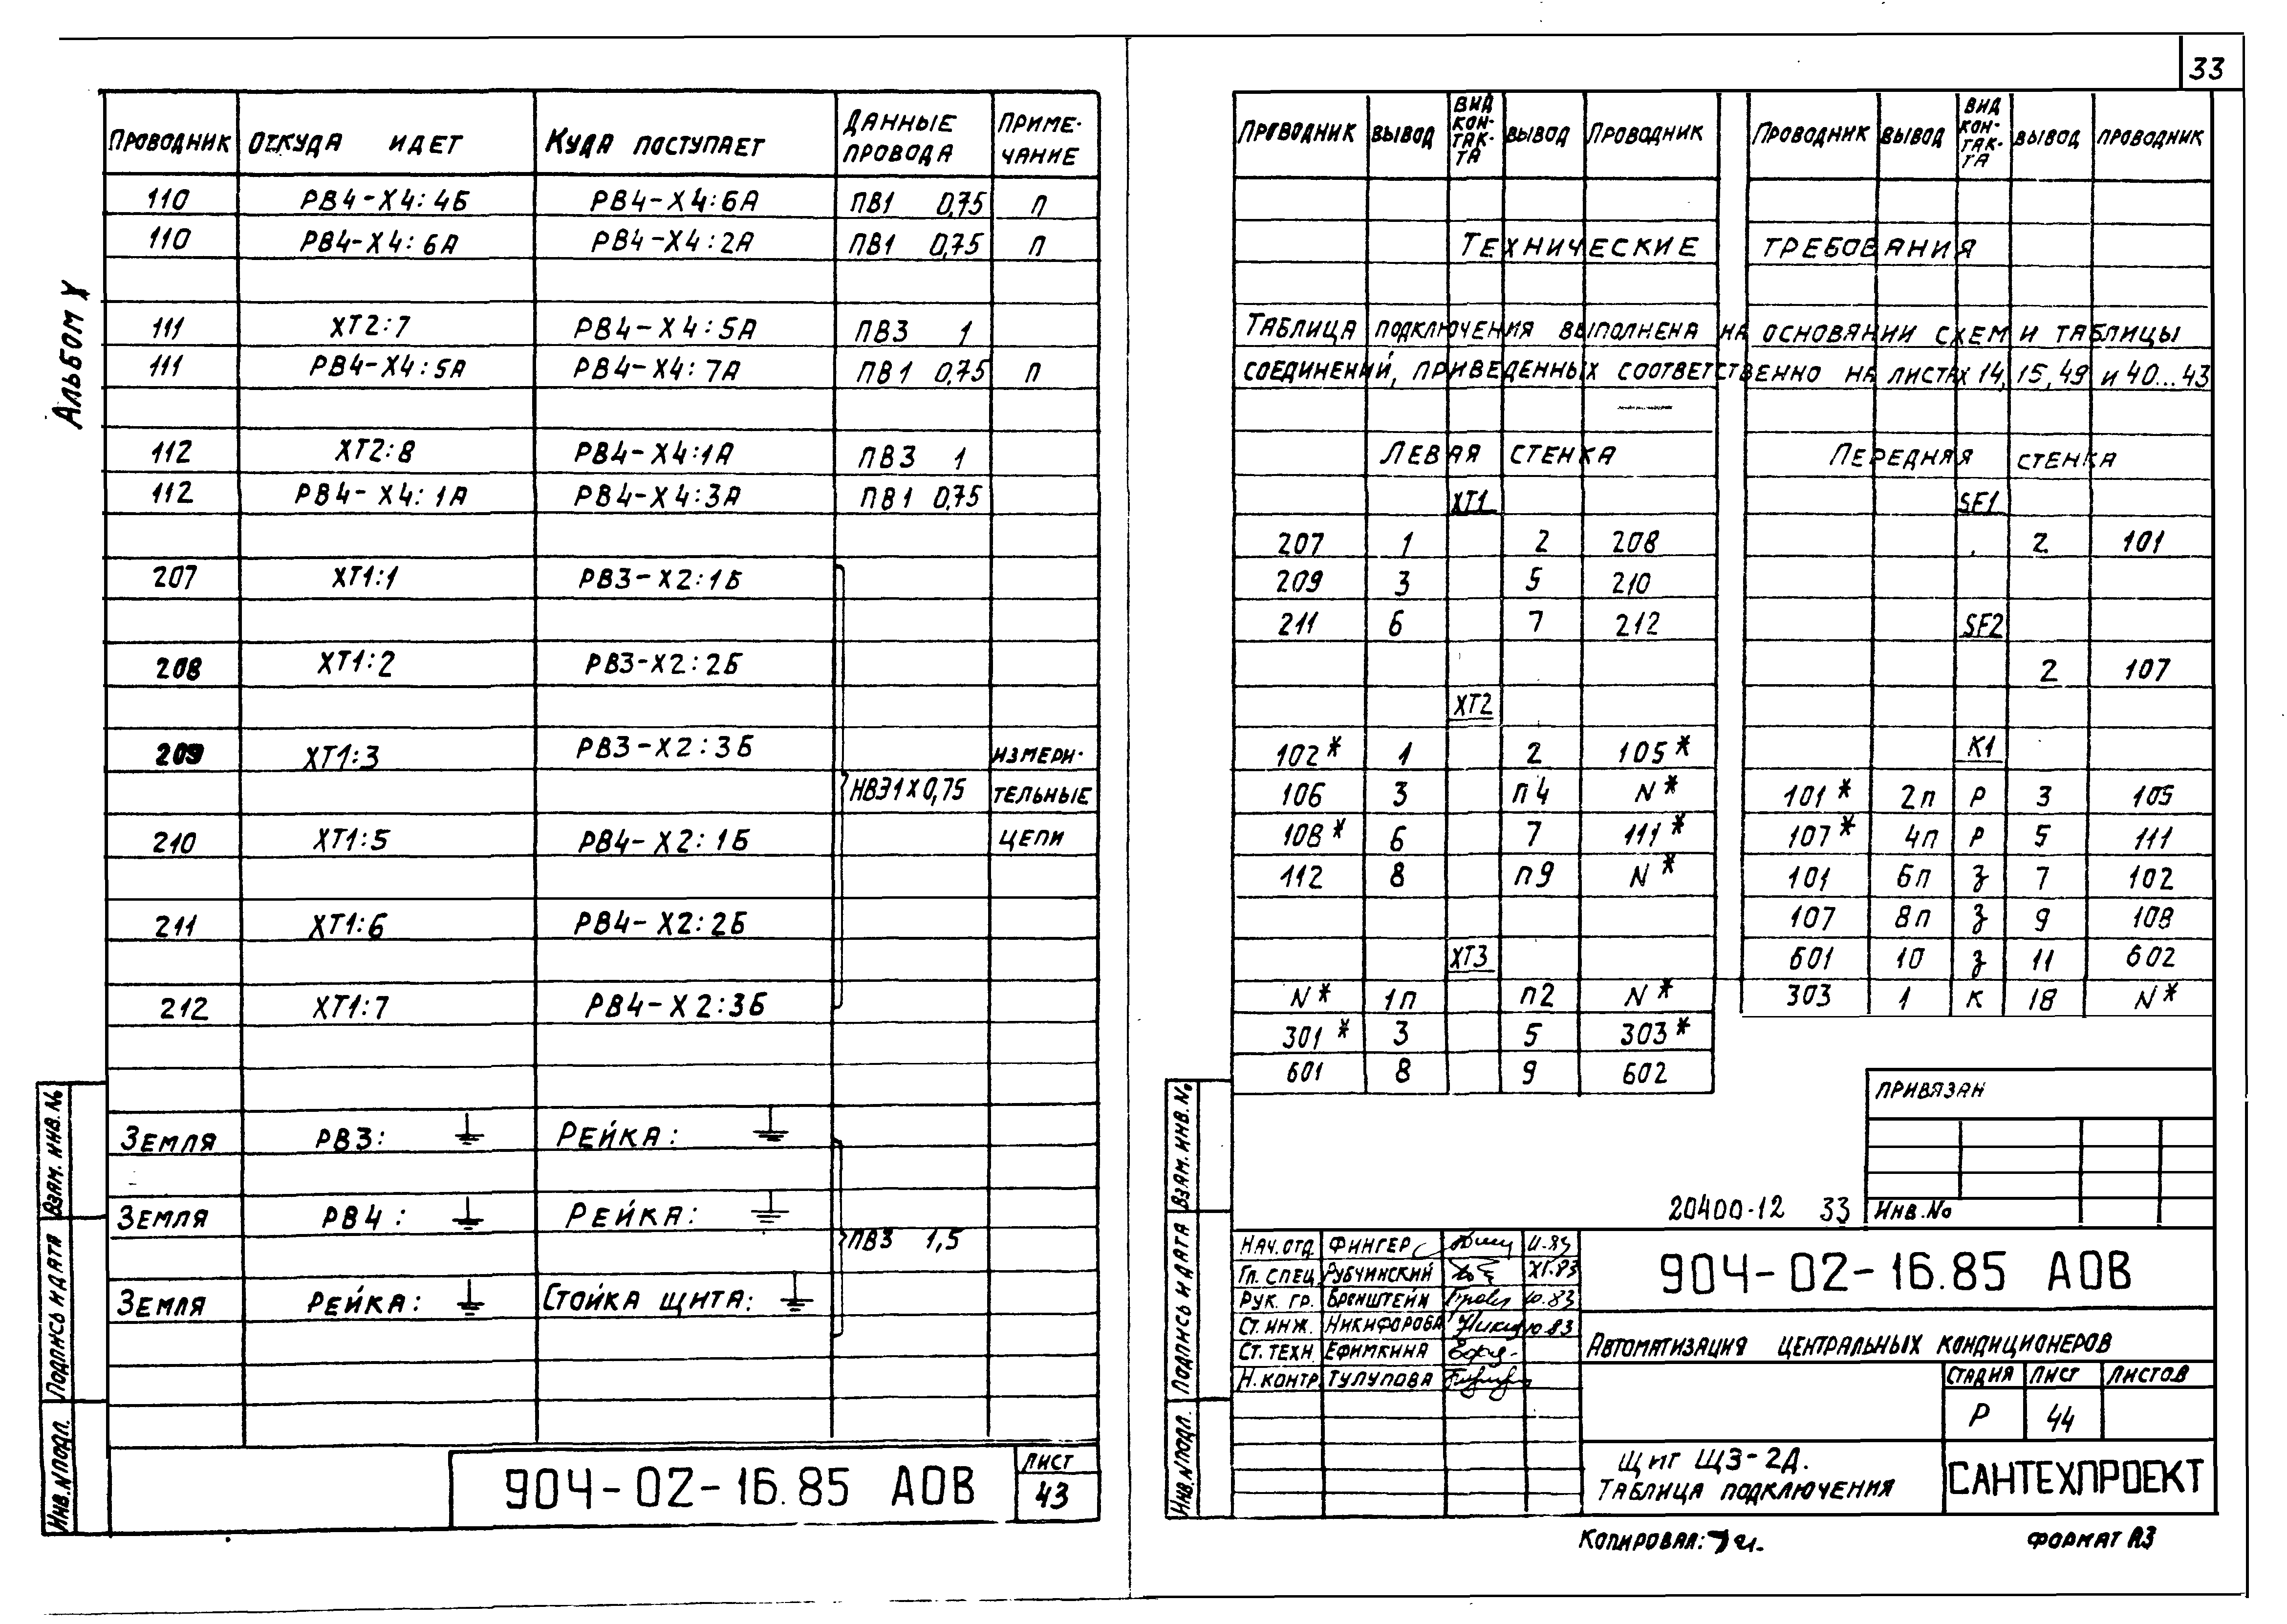 33
Альбом X
Проводник Откуда идет Куда поступает Данные провода Примечание
110 РВ4-Х4:4Б РВ4-Х4:6А ПВ1 0,75 П
110 РВ4-Х4:6А РВ4-Х4:2А ПВ1 0,75 П
111 ХТ2:7 РВ4-Х4:5А ПВ3 1
111 РВ4-Х4:5А РВ4-Х4:7А ПВ1 0,75 П
112 ХТ2:8 РВ4-Х4:1А ПВ3 1
112 РВ4-Х4:1А РВ4-Х4:3А ПВ1 0,75
207 ХТ1:1 РВ3-Х2:1Б
208 ХТ1:2 РВ3-Х2:2Б
209 ХТ1:3 РВ3-Х2:3Б измери-
НВЭ1х0,75 тельные
210 ХТ1:5 РВ4-Х2:1Б цепи
211 ХТ1:6 РВ4-Х2:2Б
212 ХТ1:7 РВ4-Х2:3Б
Земля РВ3: Рейка:
Земля РВ4: Рейка:
ПВ3 1,5
Земля Рейка: Стойка щита:
904-02-16.85 АОВ
Лист
43
Взам. инв. №
Подпись и дата
Инв. № подл.
Проводник Вывод Вид контакта Вывод Проводник Проводник Вывод Вид контакта Вывод Проводник
Технические требования
Таблица подключения выполнена на основании схем и таблицы
соединений, приведенных соответственно на листах 14, 15, 49 и 40...43
Левая стенка
ХТ1
207 1 2 208
209 3 5 210
211 6 7 212
ХТ2
102* 1 2 105*
106 3 П4 N*
108* 6 7 111*
112 8 П9 N*
ХТ3
N* 1П П2 N*
301* 3 5 303*
601 8 9 602
Передняя стенка
SF1
2 101
SF2
2 107
К1
101* 2П Р 3 105
107* 4П Р 5 111
101 6П З 7 102
107 8П З 9 108
601 10 З 11 602
303 1 К 18 N*
Привязан
Инв. №
20400-12 33
Нач. отд. Фингер 11.83
Гл. спец. Рубчинский XI.83
Рук. гр. Бронштейн 10.83
Ст. инж. Никифорова 10.83
Ст. техн. Ефимкина
Н. контр. Тулупова
904-02-16.85 АОВ
Автоматизация центральных кондиционеров
Стадия Лист Листов
Р 44
Щит ЩЗ-2Д.
Таблица подключения
САНТЕХПРОЕКТ
Взам. инв. №
Подпись и дата
Инв. № подл.
Копировал:
Формат А3